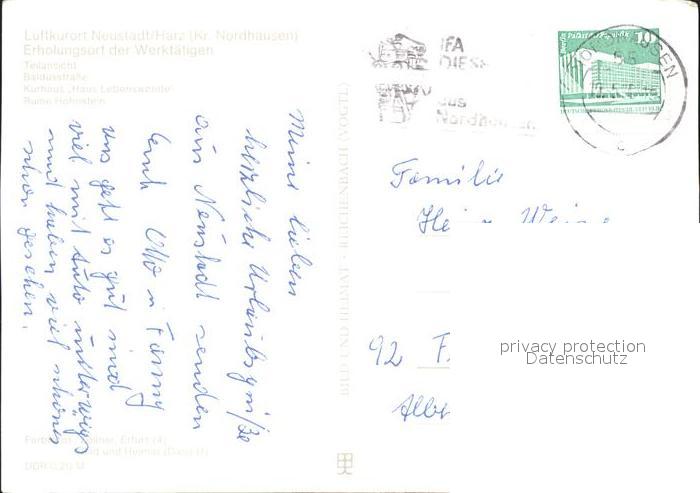 Luftkurort Neustadt/Harz (Kr. Nordhausen)
Erholungsort der Werktätigen
Teilansicht
Burgstraße
Kurhaus „Haus Lebenswende"
Ruine Hohnstein
Meine lieben
herzliche Urlaubsgrüße
aus Neustadt senden
Euch Otto u Fanny
uns geht es gut sind
viel mit Auto unterwegs
und haben viel schönes
schon gesehen.
Erfurt (4)
Bild und Heimat (Dick) (1)
DDR 0,20 M
BILD UND HEIMAT · REICHENBACH (VOGTL)
IFA
DIESEL
aus
Nordhausen
10
NORDHAUSEN
55
c
Familie
92 F.
privacy protection
Datenschutz